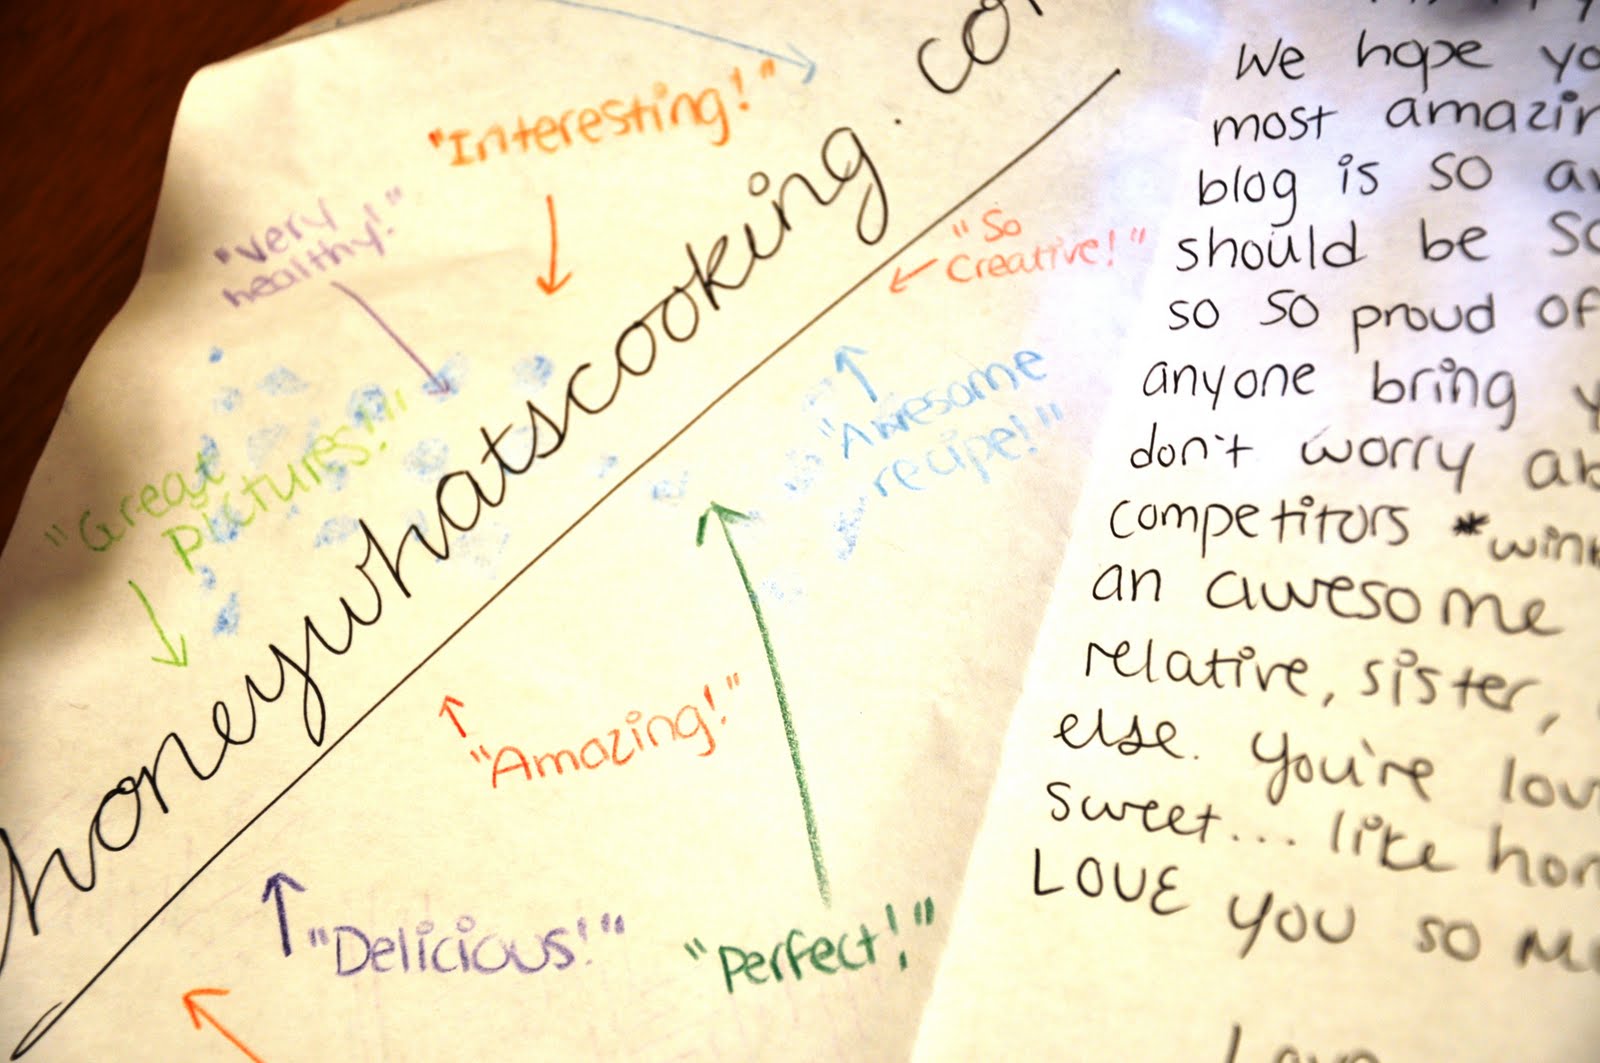 "Interesting!"
"Very
healthy!"
"So
Creative!"
"Great
pictures!"
"Awesome
recipe!"
honeywhatscooking.co
"Amazing!"
"Delicious!"
"Perfect!"
We hope yo
most amazin
blog is so aw
should be so
so so proud of
anyone bring y
don't worry ab
competitors *wink
an awesome
relative, sister,
else. You're lov
sweet... like hon
LOVE YOU SO MU
Love